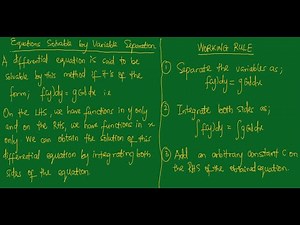 Equations Solvable by Variable Separation
A differential equation is said to be
solvable by this method if it's of the
form; f(y)dy = g(x)dx i.e
On the LHS, we have functions in y only
and on the RHS, we have functions in x
only. We can obtain the solution of this
differential equation by integrating both
sides of the equation.
WORKING RULE
① Separate the variables as;
f(y)dy = g(x)dx
② Integrate both sides as;
∫f(y)dy = ∫g(x)dx
③ Add an arbitrary constant C on
the RHS of the obtained equation.